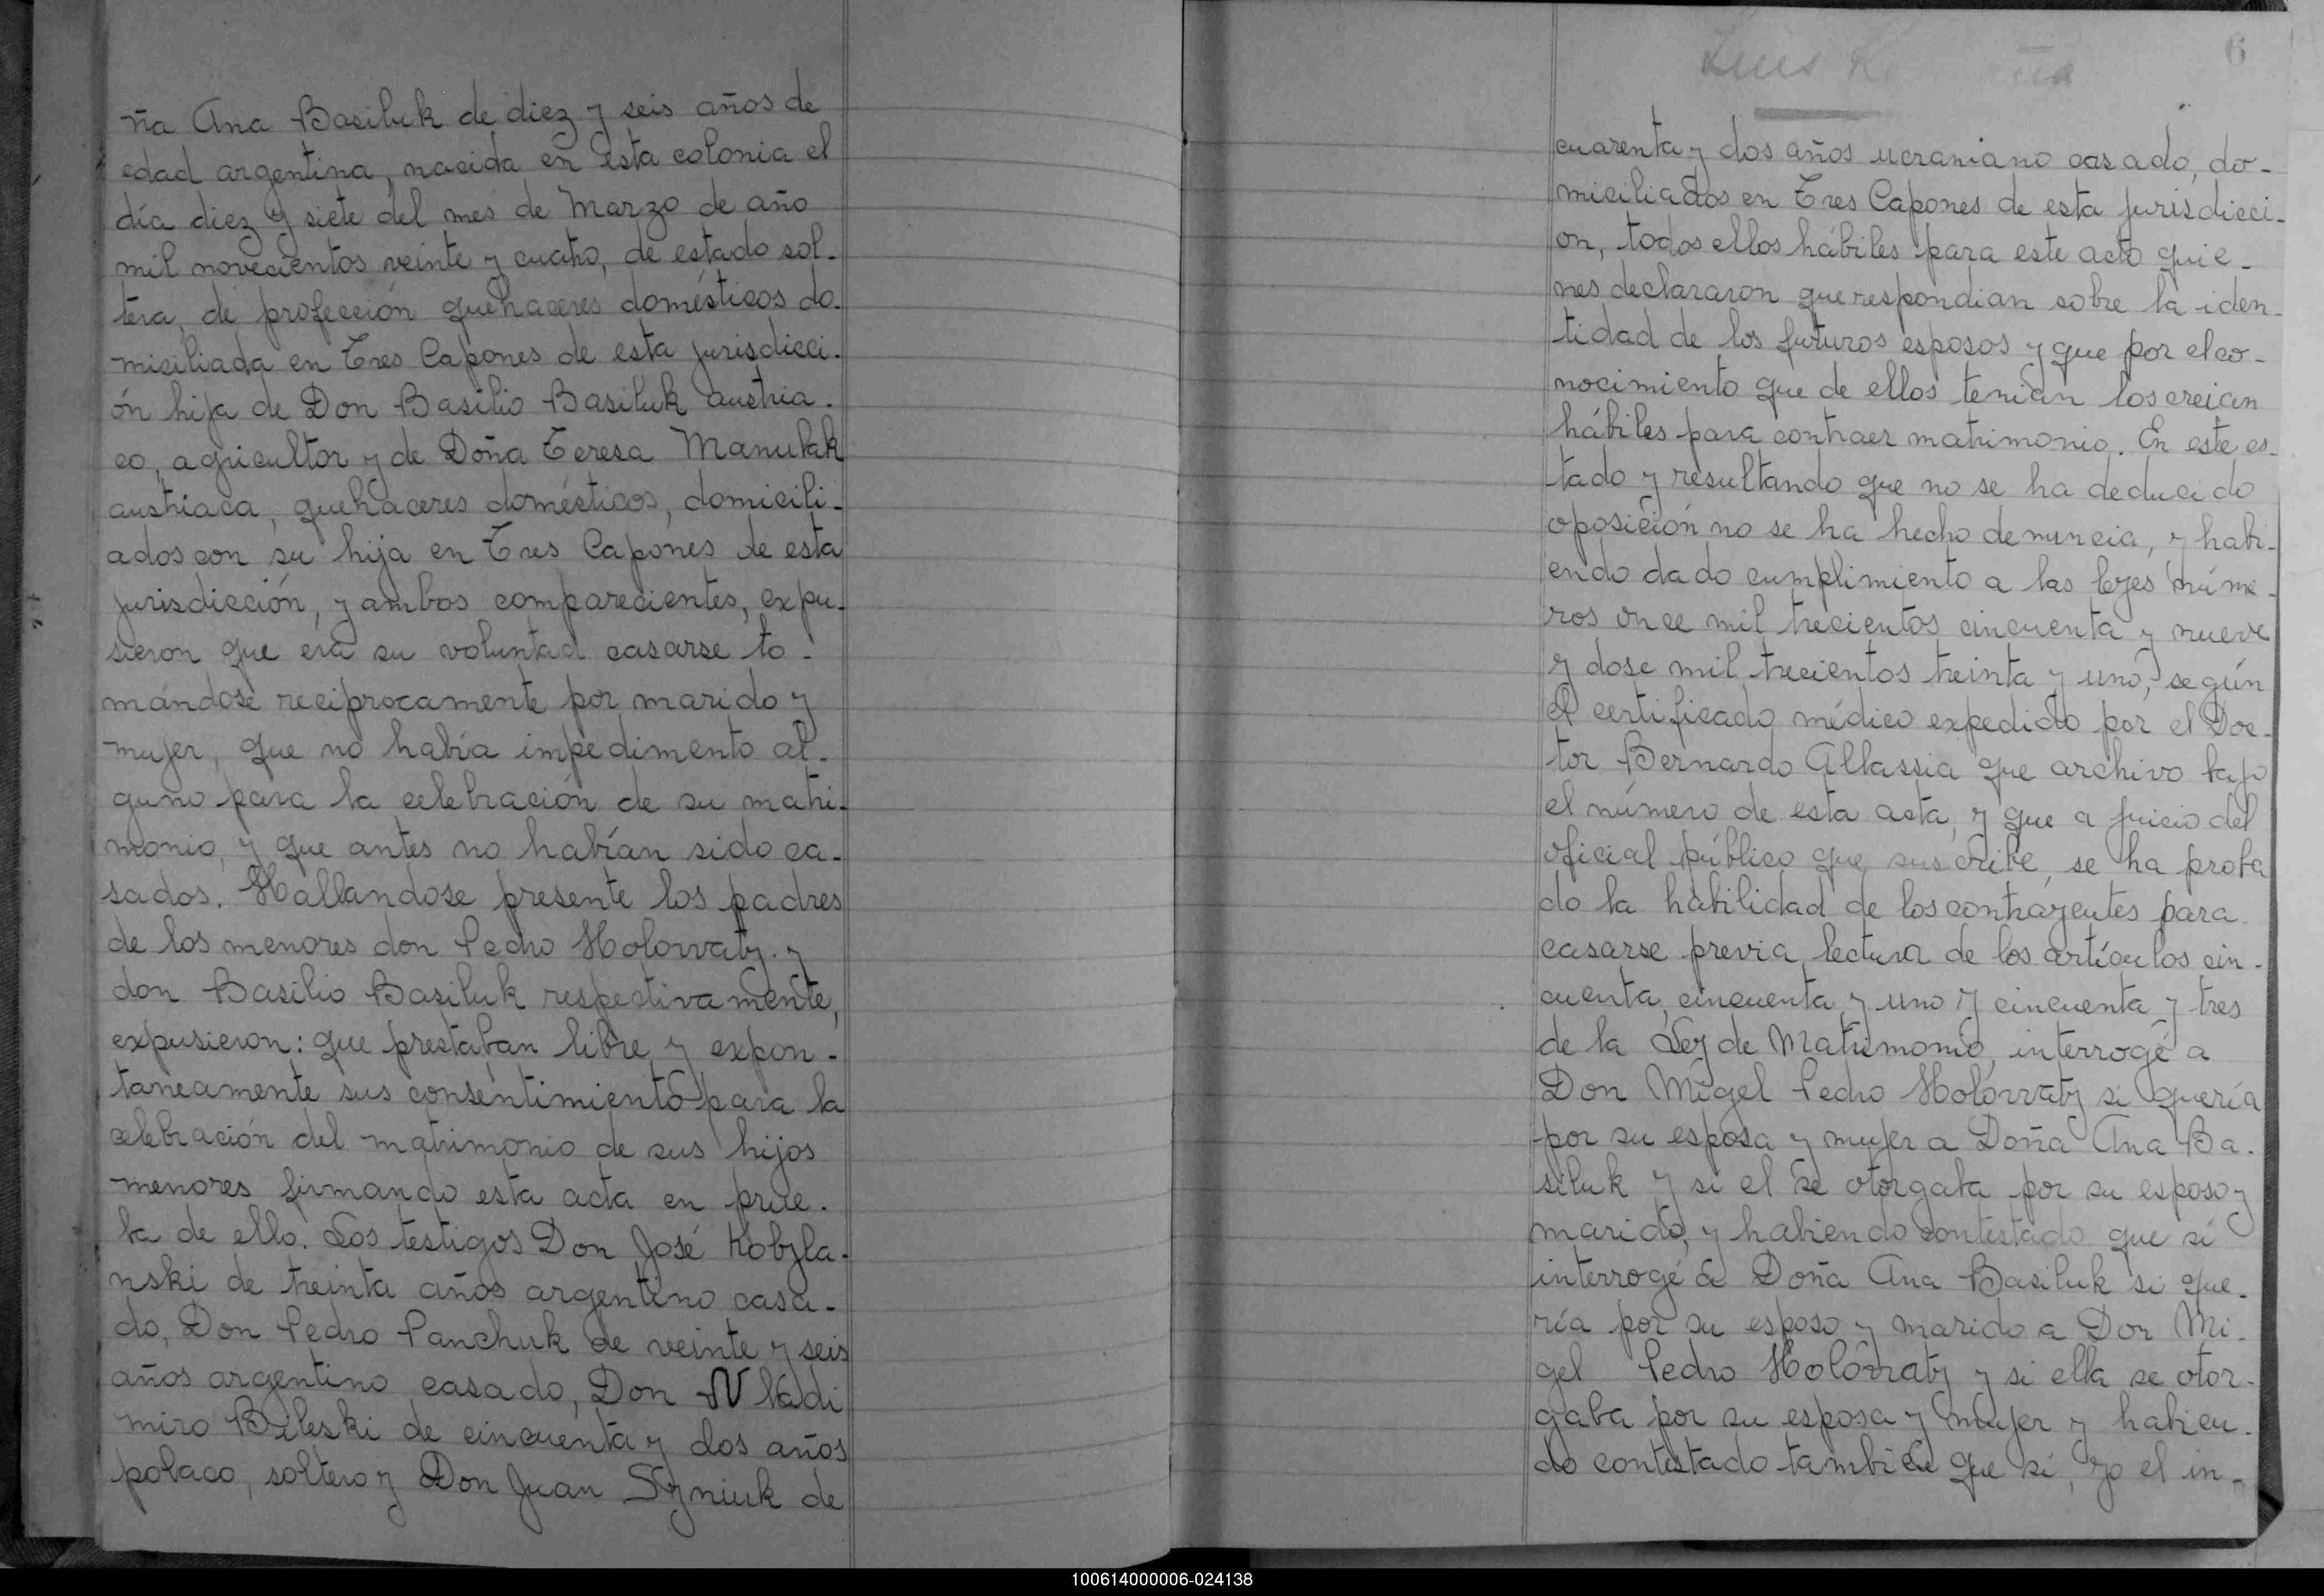 ña Ana Basiluk de diez y seis años de
edad argentina, nacida en esta colonia el
día diez y siete del mes de Marzo de año
mil novecientos veinte y cuatro, de estado sol-
tera, de profección quehaceres domésticos do-
miciliada en Tres Capones de esta jurisdicci-
ón hija de Don Basilio Basiluk austria-
co, agricultor y de Doña Teresa Manulak
austriaca, quehaceres domésticos, domicili-
ados con su hija en Tres Capones de esta
jurisdicción, y ambos comparecientes, expu-
sieron que era su voluntad casarse to-
mándose reciprocamente por marido y
mujer, que no había impedimento al-
guno para la celebración de su matri-
monio, y que antes no habían sido ca-
sados. Hallandose presente los padres
de los menores don Pedro Holowaty. y
don Basilio Basiluk respectivamente,
expusieron: que prestaban libre y expon-
taneamente sus consentimiento para la
celebración del matrimonio de sus hijos
menores firmando esta acta en prue-
ba de ello. Los testigos Don José Kobyla-
nski de treinta años argentino casa-
do, Don Pedro Panchuk de veinte y seis
años argentino casado, Don Wladi
miro Bileski de cincuenta y dos años
polaco, soltero y Don Juan Syniuk de
Luis
6
cuarenta y dos años ucraniano casado, do-
miciliados en Tres Capones de esta jurisdicci-
on, todos ellos hábiles para este acto quie-
nes declararon que respondian sobre la iden-
tidad de los futuros esposos y que por el co-
nocimiento que de ellos tenian los creian
hábiles para contraer matrimonio. En este es-
tado y resultando que no se ha deducido
oposición no se ha hecho denuncia, y habi-
endo dado cumplimiento a las leyes núme-
ros once mil trecientos cincuenta y nueve
y dose mil trecientos treinta y uno, según
el certificado médico expedido por el Doc-
tor Bernardo Allassia que archivo bajo
el número de esta acta, y que a juicio del
oficial público que suscribe, se ha proba
do la habilidad de los contrayentes para
casarse previa lectura de los artículos cin-
cuenta, cincuenta y uno y cincuenta y tres
de la Ley de Matrimonio, interrogé a
Don Migel Pedro Holowaty si quería
por su esposa y mujer a Doña Ana Ba-
siluk y si el se otorgaba por su esposo y
marido, y habiendo contestado que si
interrogé a Doña Ana Basiluk si que-
ría por su esposo y marido a Don Mi-
gel Pedro Holowaty y si ella se otor-
gaba por su esposa y mujer y habien-
do contestado también que si, yo el in-
100614000006-024138